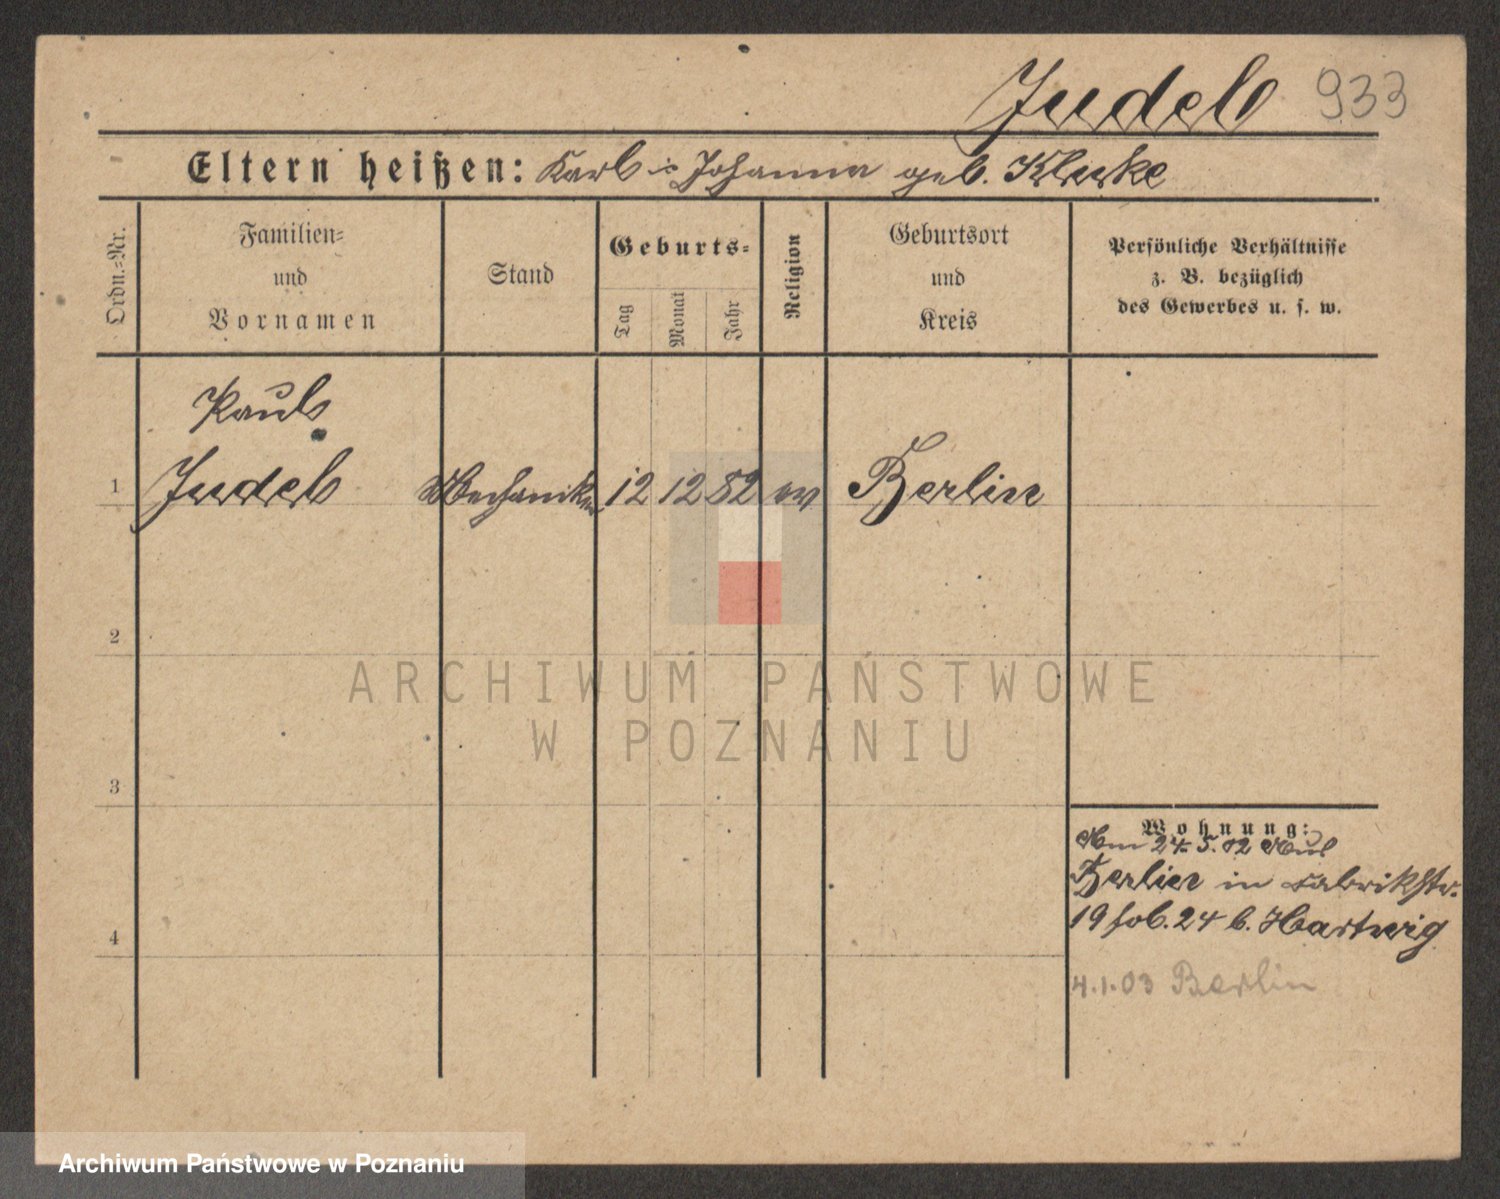 Judel 933
Eltern heißen: Karl u Johanna geb. Kluke
Ordn.-Nr.
Familien-
und
Vornamen
Stand
Geburts-
Tag
Monat
Jahr
Religion
Geburtsort
und
Kreis
Persönliche Verhältnisse
z. B. bezüglich
des Gewerbes u. s. w.
Paul
1 Judel Mechaniker 12 12 82 ev Berlin
2
3
4
Wohnung:
Am 24. 5. 02 Aus
Berlin in Fabrikstr.
19 b. Hartwig
4.1.03 Berlin
ARCHIWUM PAŃSTWOWE
W POZNANIU
Archiwum Państwowe w Poznaniu